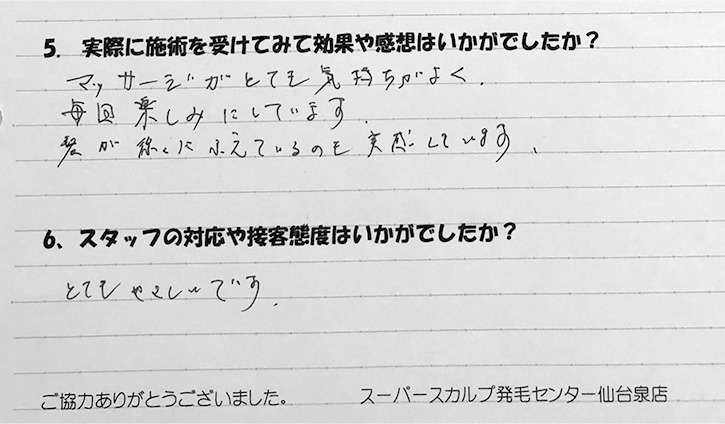 5. 実際に施術を受けてみて効果や感想はいかがでしたか？
マッサージがとても気持ちがよく、
毎回楽しみにしています。
髪が徐々にふえているのも実感しています。
6、スタッフの対応や接客態度はいかがでしたか？
とてもやさしいです。
ご協力ありがとうございました。 スーパースカルプ発毛センター仙台泉店